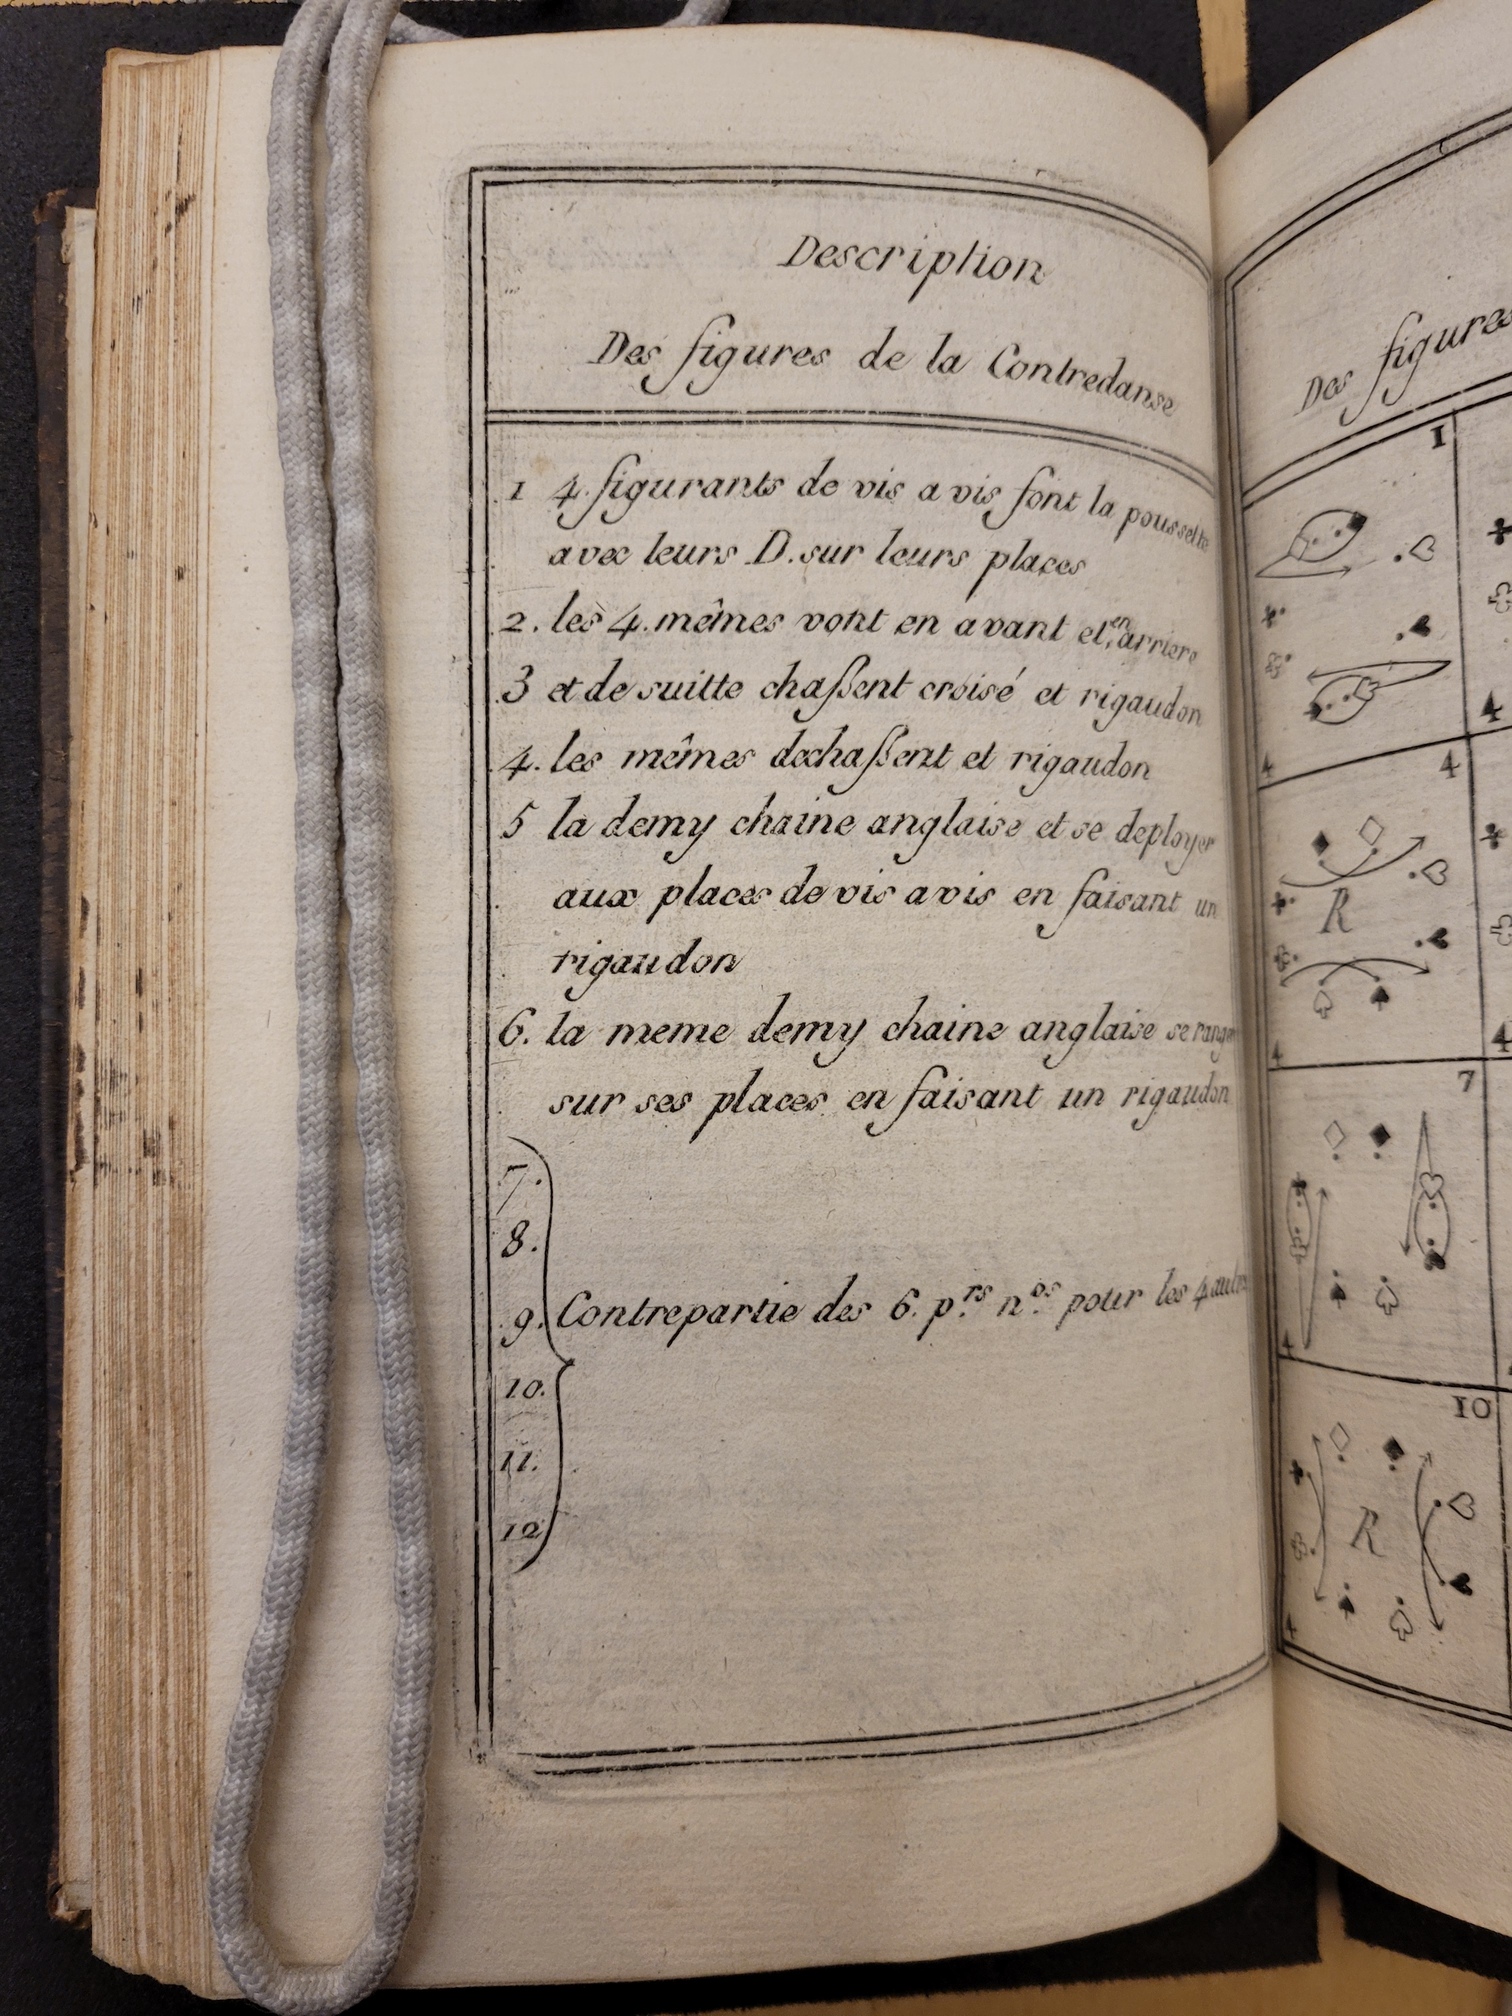 Description
Des figures de la Contredanse
1 4. figurants de vis a vis font la poussette
avec leurs D. sur leurs places
2. les 4. mêmes vont en avant et en arriere
3 et de suitte chassent croisé et rigaudon
4. les mêmes dechassent et rigaudon
5 la demy chaine anglaise et se deployer
aux places de vis a vis en faisant un
rigaudon
6. la meme demy chaine anglaise se ranger
sur ses places en faisant un rigaudon
7.
8.
9. Contrepartie des 6. p.rs n.os pour les 4 autres
10.
11.
12
Des figures
1
4
4
4
R
4
4
7
4
10
R
4